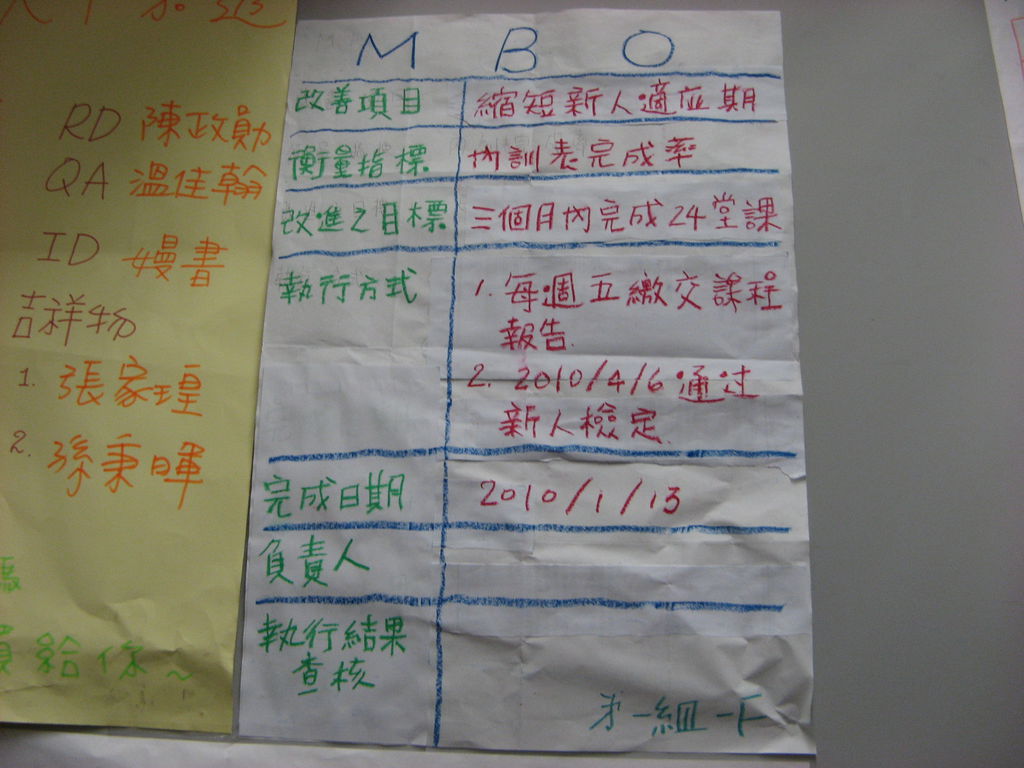 RD 陳政勛
QA 溫佳翰
ID 嫚書
吉祥物
1. 張家瑝
2. 孫秉暉
給你~
M B O
改善項目 縮短新人適應期
衡量指標 內訓表完成率
改進之目標 三個月內完成24堂課
執行方式 1. 每週五繳交課程
報告.
2. 2010/4/6 通过
新人檢定.
完成日期 2010/1/13
負責人
執行結果
查核
第一組